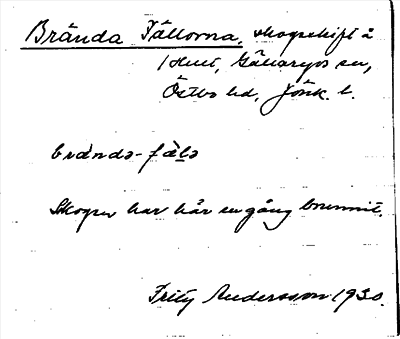 Brända Fällorna, skogsskift å
Hult, Gällaryds sn,
Östbo hd, Jönk. l.
brändə-fälə
Skogen har här en gång brunnit.
Fritz Andersson 1930.